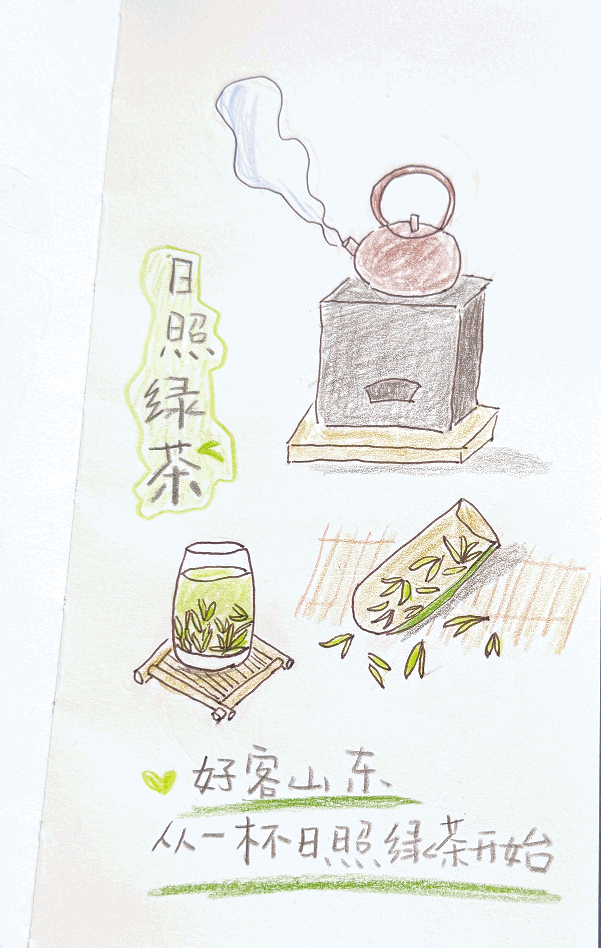 日照绿茶
好客山东
从一杯日照绿茶开始